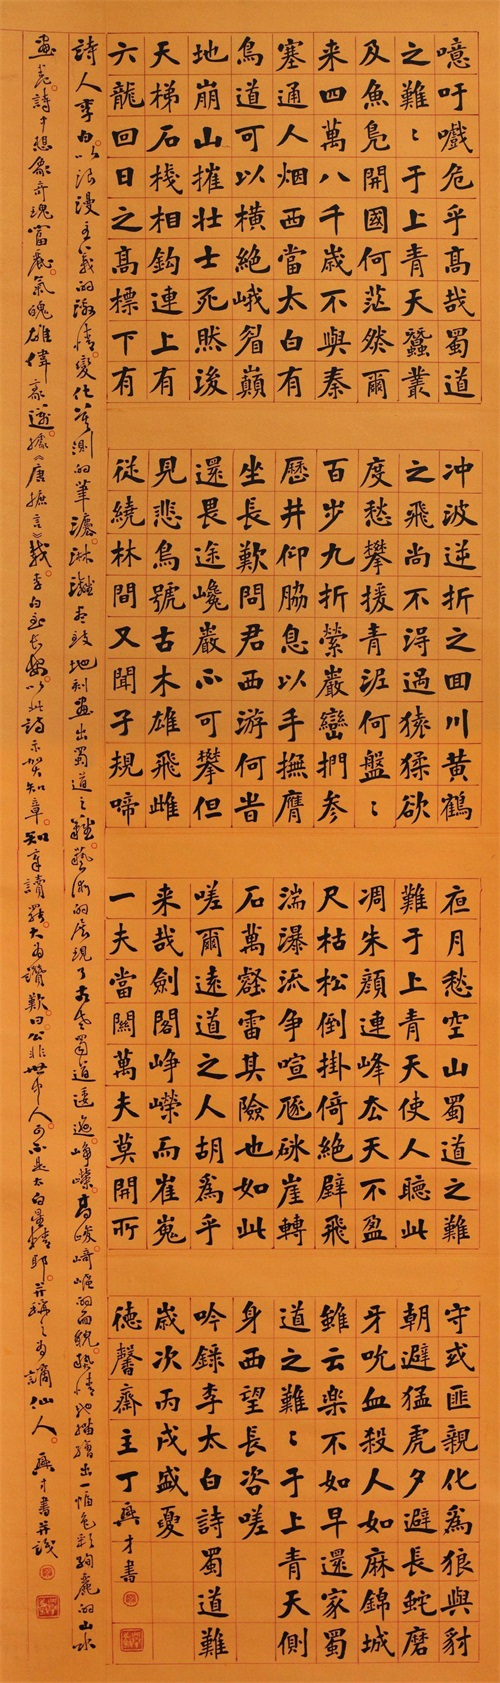 噫吁嚱危乎高哉蜀道
之難〻于上青天蠶叢
及魚鳧開國何茫然爾
来四萬八千歲不與秦
塞通人烟西當太白有
鳥道可以橫絶峨眉巔
地崩山摧壮士死然後
天梯石棧相鈎連上有
六龍回日之高標下有
冲波逆折之回川黄鶴
之飛尚不得過猿猱欲
度愁攀援青泥何盤〻
百步九折縈巖巒捫参
歷井仰脇息以手撫膺
坐長歎問君西游何旹
還畏途巉巖不可攀但
見悲鳥號古木雄飛雌
従繞林間又聞子規啼
夜月愁空山蜀道之難
難于上青天使人聽此
凋朱顔連峰去天不盈
尺枯松倒掛倚絶壁飛
湍瀑流争喧豗砯崖轉
石萬壑雷其險也如此
嗟爾遠道之人胡爲乎
来哉劍閣峥嶸而崔嵬
一夫當關萬夫莫開所
守或匪親化為狼與豺
朝避猛虎夕避長蛇磨
牙吮血殺人如麻錦城
雖云樂不如早還家蜀
道之難〻于上青天側
身西望長咨嗟
吟錄李太白詩蜀道難
歲次丙戌盛夏
德馨齋主丁興才書
詩人李白。以浪漫主義的激情。變化莫測的筆法。淋漓盡致地刻畫出蜀道之難。藝術的展現了古老蜀道逶迤峥嶸。高峻崎嶇的面貌。熱情地描繪出一幅色彩絢麗的山水
畫卷。詩中想象奇瑰富麗。氣魄雄偉豪邁。據《唐摭言》載。李白至長安。以此詩示賀知章。知章讀罷。大為讚歎。曰。公非世中人。可不是太白星精耶。并稱之為謫仙人。興才書并識